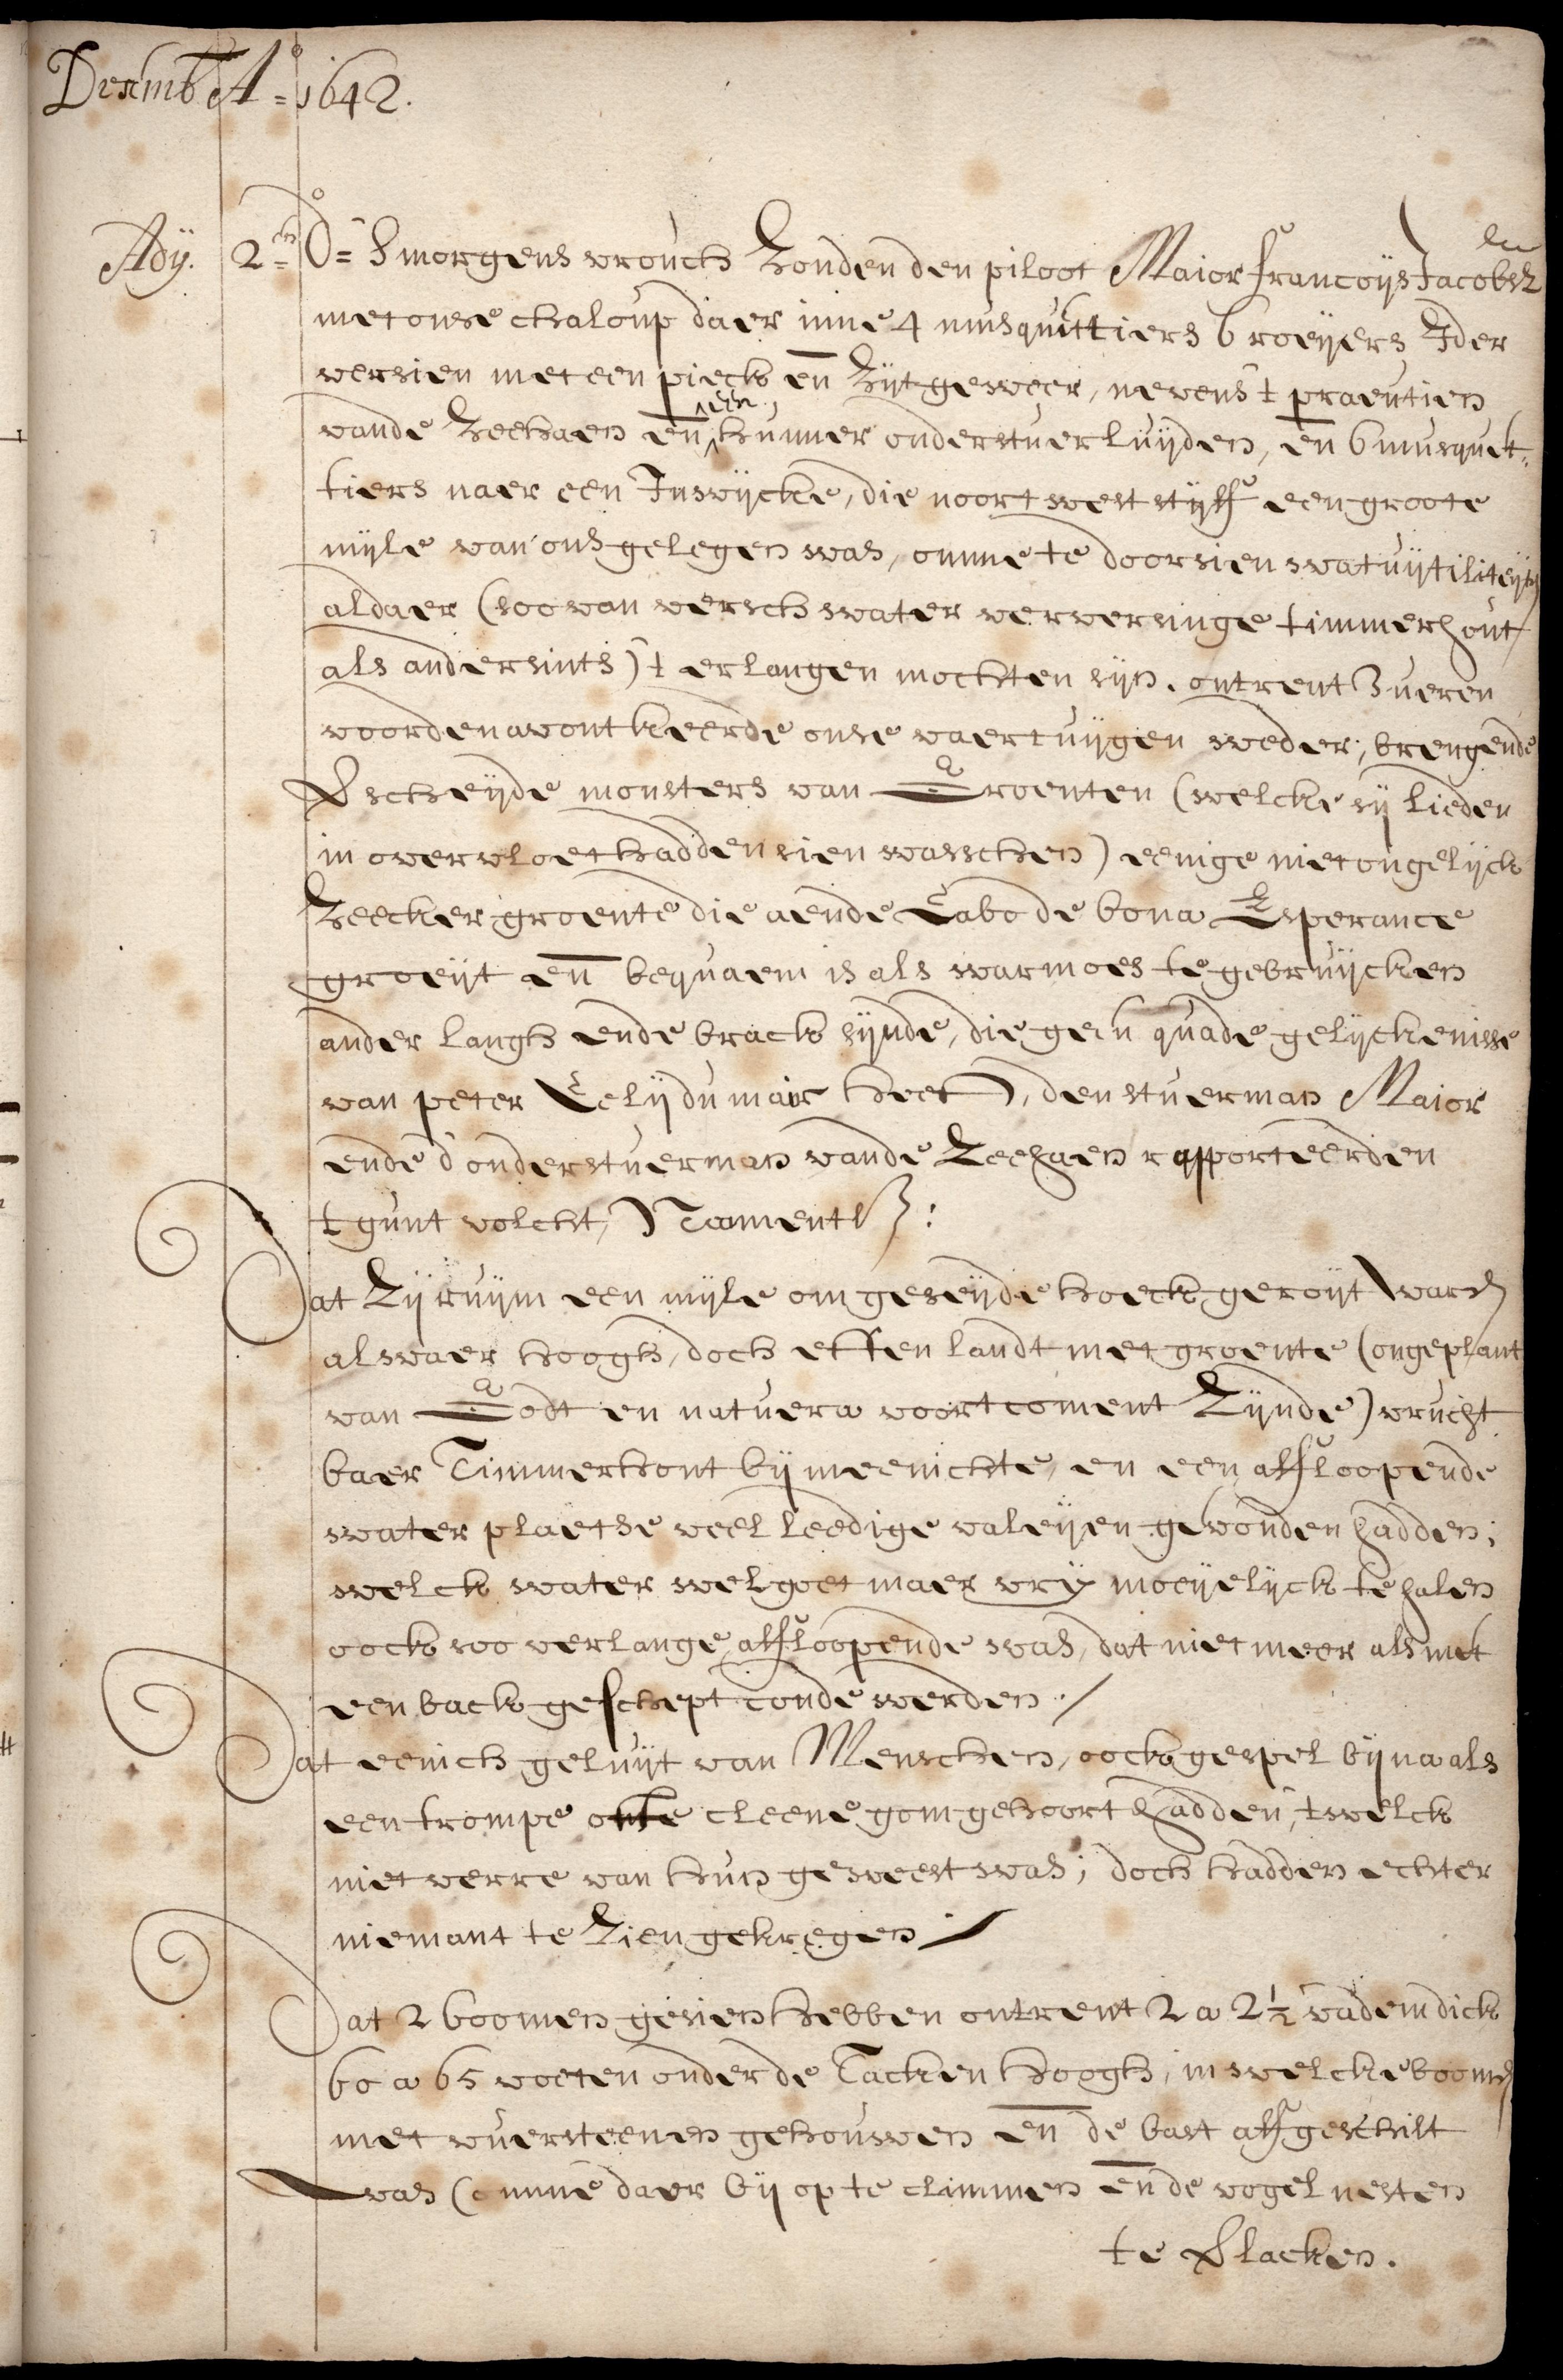 Desemb A° 1642.
Ady. 2en do= Smorgens vrouch zonden den piloot Maior francoijs Jacobsz
met onse chaloup daer inne 4 musquittiers 6 roeijers Ider
versien met een pieck en zijtgeweer, nevens t praeutien
vande Zeehaen en een hunner onderstuerluijden, en 6 musquet„
tiers naer een Inwijcke, die noortwest stijff een groote
mijle van ons gelegen was, omme te doorsien wat uijtiliteijten
aldaer (soo van versch water verversinge timmerhout
als andersints) t erlangen mochten sijn. ontrent 3 ueren
voorden avont keerde onse vaertuijgen weder, brengende
Verscheijde monsters van Groenten (welcke sij lieden
in overvloet hadden sien wasschen) eenige niet ongelijck
Zeecker groente die aende Cabo de bona Esperance
groeijt en bequaem is als warmoes te gebruijcken
ander langh ende brack sijnde, die geen quade gelijckenisse
van peter Celij du mair heet), den stuerman Maior
ende d'onderstuerman vande Zeehaen rapporteerden
t gunt volcht, Namentl:
Dat Zij ruijm een mijle om geseijde hoeck geroijt waren
alwaer hoogh, doch effen landt met groente (ongeplant
van Godt en natuera voortcoment Zijnde) vrucht
baer Timmerhout bij meenichte, en een affloopende
water plaetse veel leedige valeijen gevonden hadden;
welck water wel goet maer vrij moeijelijck te halen
oock soo verlange affloopende was, dat niet meer als met
een back geschept conde werden ./
Dat eenich geluijt van Menschen, oock gespel bijna als
een trompe ofte cleene gom gehoort hadden, twelck
niet verre van hun geweest was; doch hadden echter
niemant te Zien gekregen /
Dat 2 boomen gesien hebben ontrent 2 a 2½ vadem dick
60 a 65 voeten onder de Tacken hoogh, in welcke boomen
met vuersteenen gehouwen en de bast affgeschilt
was (omme daer bij op te climmen en de vogel nesten
te Slacken.